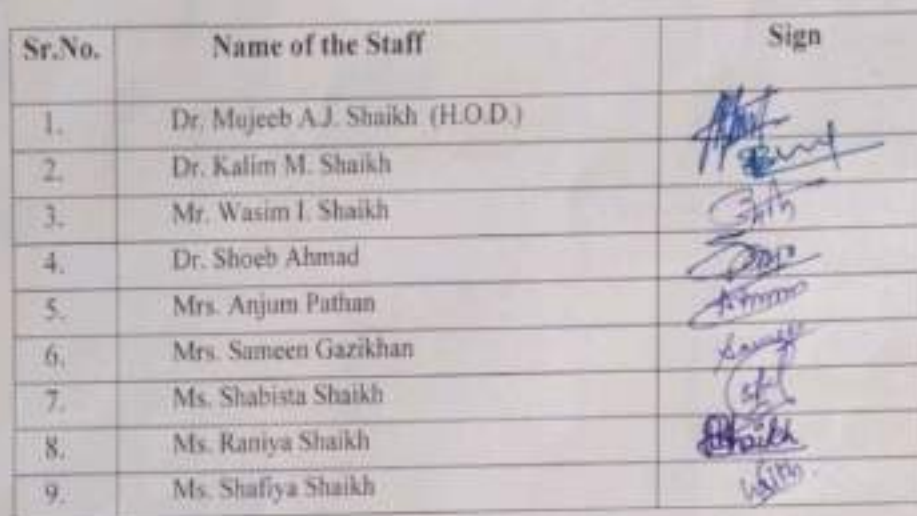 Sr.No. Name of the Staff Sign
1. Dr. Mujeeb A.J. Shaikh (H.O.D.)
2. Dr. Kalim M. Shaikh
3. Mr. Wasim I. Shaikh
4. Dr. Shoeb Ahmad
5. Mrs. Anjum Pathan
6. Mrs. Sameen Gazikhan
7. Ms. Shabista Shaikh
8. Ms. Raniya Shaikh Shaikh
9. Ms. Shafiya Shaikh